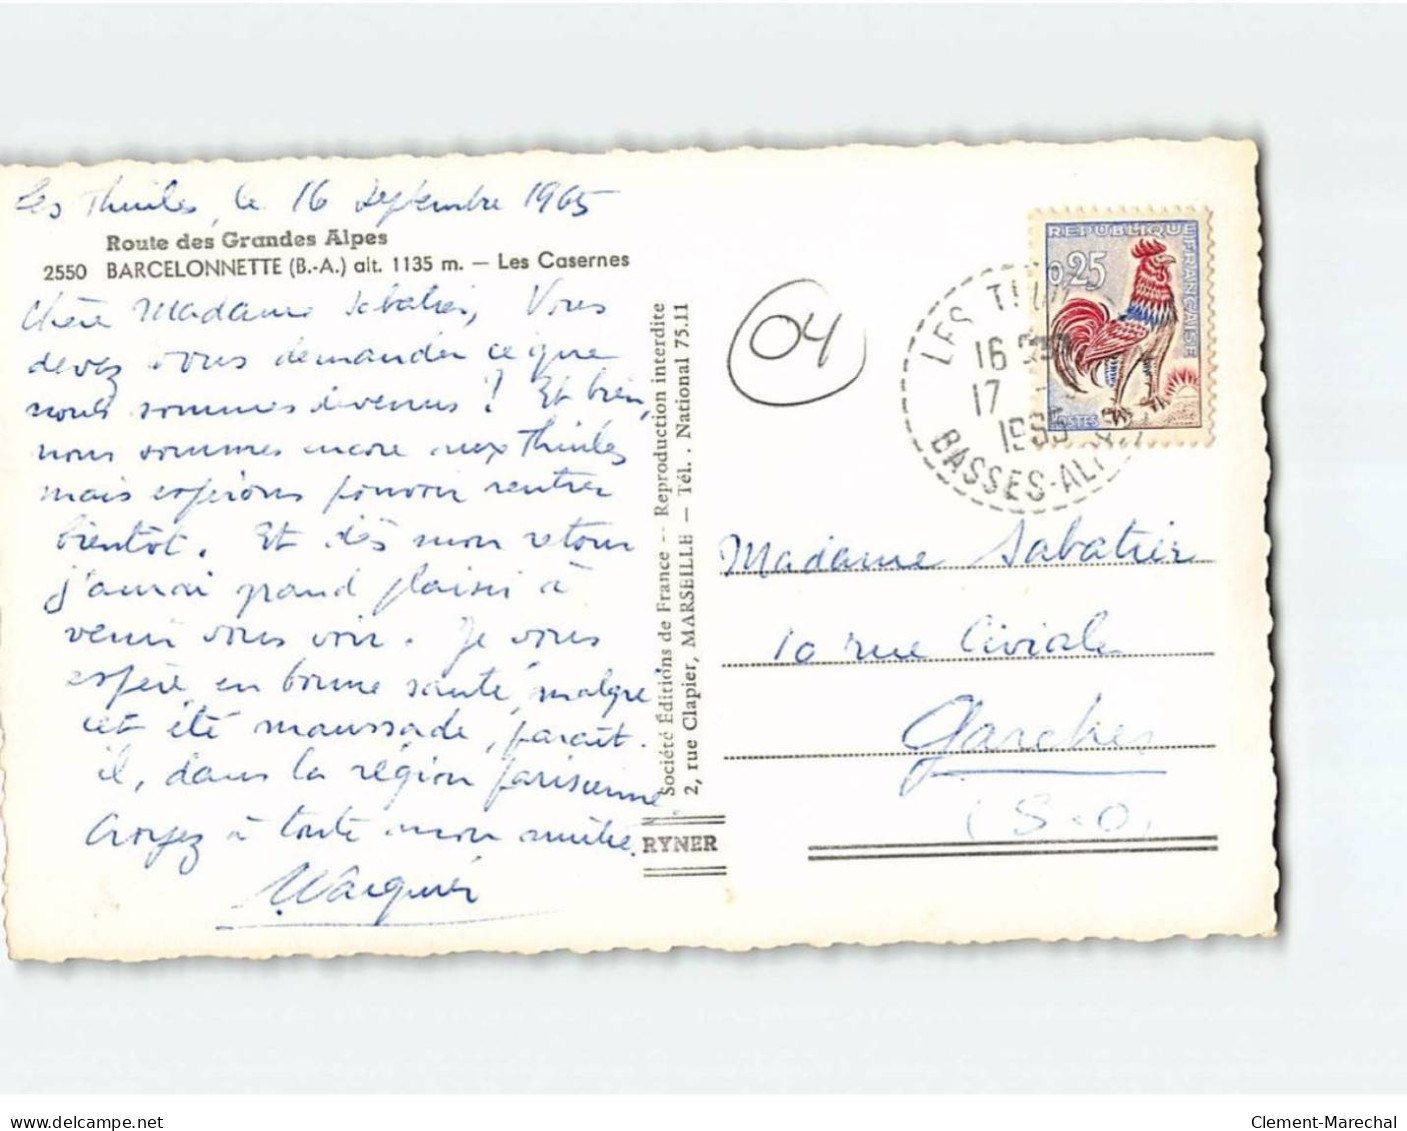 Les Thuiles, le 16 Septembre 1965
Route des Grandes Alpes
2550 BARCELONNETTE (B.-A.) alt. 1135 m. — Les Casernes
Chère Madame Sabatier, Vous
devez vous demander ce que
nous sommes devenus ! Et bien,
nous sommes encore aux Thuiles
mais espérons pouvoir rentrer
bientôt. Et dès mon retour
j'aurai grand plaisir à
venir vous voir. Je vous
espère en bonne santé, malgré
cet été maussade, parait-
il, dans la région parisienne.
Croyez à toute mon amitié.
Société Éditions de France -- Reproduction interdite
2, rue Clapier, MARSEILLE — Tél. . National 75.11
RYNER
04
REPUBLIQUE FRANÇAISE
0,25
POSTES
LES
16
17
1965
BASSES-ALP
Madame Sabatier
10 rue Civiale
Garches
(S-O)
delcampe.net
Clement-Marechal